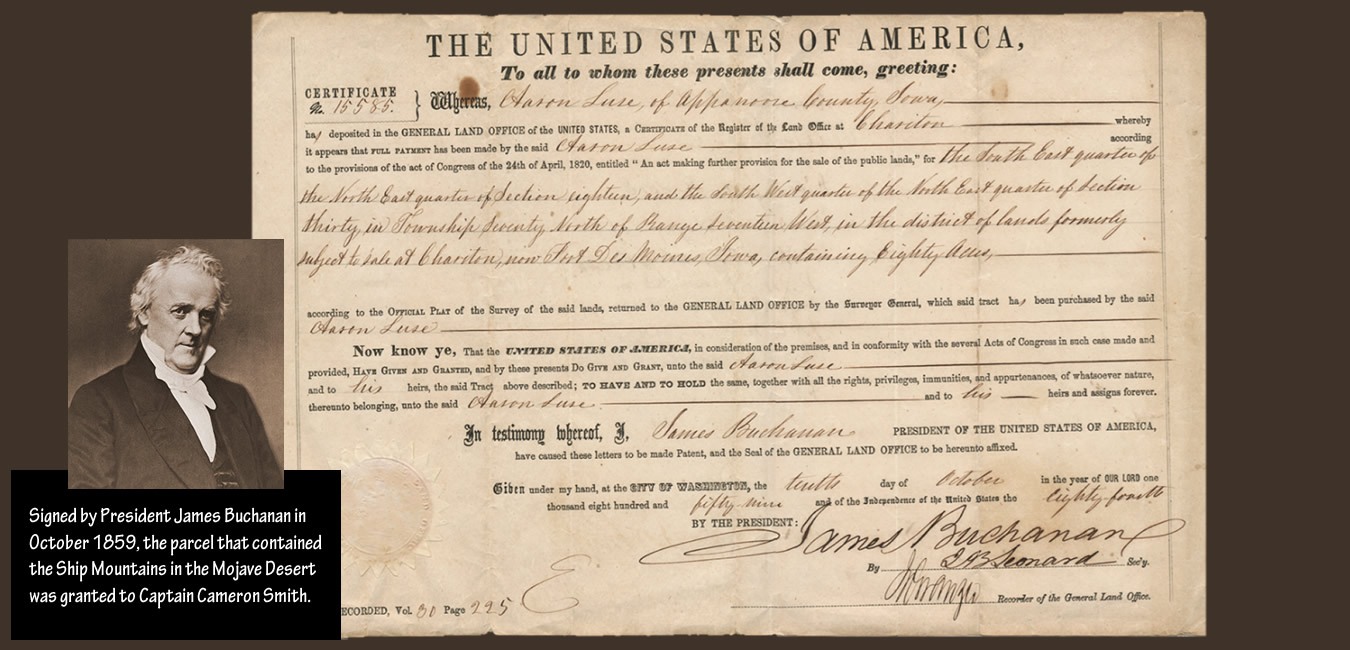 THE UNITED STATES OF AMERICA,
To all to whom these presents shall come, greeting:
CERTIFICATE
No. 15585.
Whereas, Aaron Luse, of Appanoose County, Iowa,
has deposited in the GENERAL LAND OFFICE of the UNITED STATES, a CERTIFICATE of the Register of the Land Office at Chariton whereby
it appears that FULL PAYMENT has been made by the said Aaron Luse according
to the provisions of the act of Congress of the 24th of April, 1820, entitled "An act making further provision for the sale of the public lands," for the South East quarter of
the North East quarter of Section eighteen, and the South West quarter of the North East quarter of Section
thirty, in Township Seventy North of Range seventeen West, in the district of lands formerly
subject to sale at Chariton, now Fort Des Moines, Iowa, containing Eighty Acres,
according to the OFFICIAL PLAT of the Survey of the said lands, returned to the GENERAL LAND OFFICE by the Surveyor General, which said tract has been purchased by the said
Aaron Luse
Now know ye, That the UNITED STATES OF AMERICA, in consideration of the premises, and in conformity with the several Acts of Congress in such case made and
provided, HAVE GIVEN AND GRANTED, and by these presents DO GIVE AND GRANT, unto the said Aaron Luse
and to his heirs, the said Tract above described; TO HAVE AND TO HOLD the same, together with all the rights, privileges, immunities, and appurtenances, of whatsoever nature,
thereunto belonging, unto the said Aaron Luse and to his heirs and assigns forever.
In testimony whereof, I, James Buchanan PRESIDENT OF THE UNITED STATES OF AMERICA,
have caused these letters to be made Patent, and the Seal of the GENERAL LAND OFFICE to be hereunto affixed.
Given under my hand, at the CITY OF WASHINGTON, the tenth day of October in the year of OUR LORD one
thousand eight hundred and fifty nine and of the Independence of the United States the eighty fourth
BY THE PRESIDENT: James Buchanan
By J. B. Leonard Sec'y.
Recorder of the General Land Office.
RECORDED, Vol. 30 Page 225
Signed by President James Buchanan in
October 1859, the parcel that contained
the Ship Mountains in the Mojave Desert
was granted to Captain Cameron Smith.